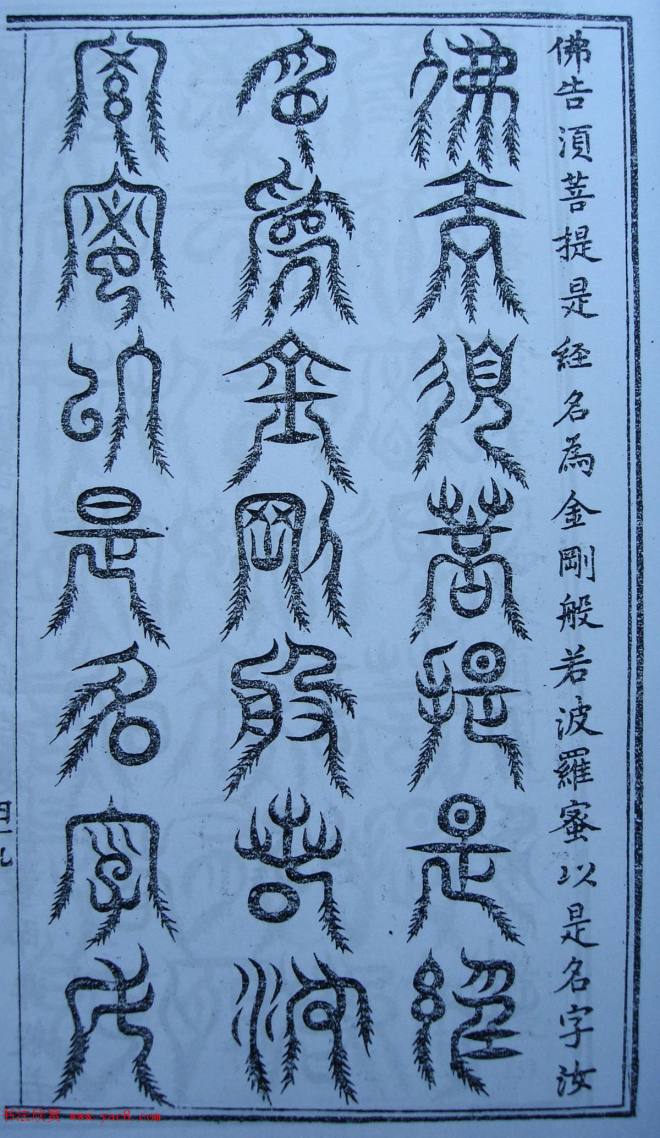 佛告湏菩提是経名為金剛般若波羅蜜以是名字汝
佛告須菩提是經
名為金剛般若波
羅蜜以是名字汝
四十九
书法欣赏 www.yac8.com